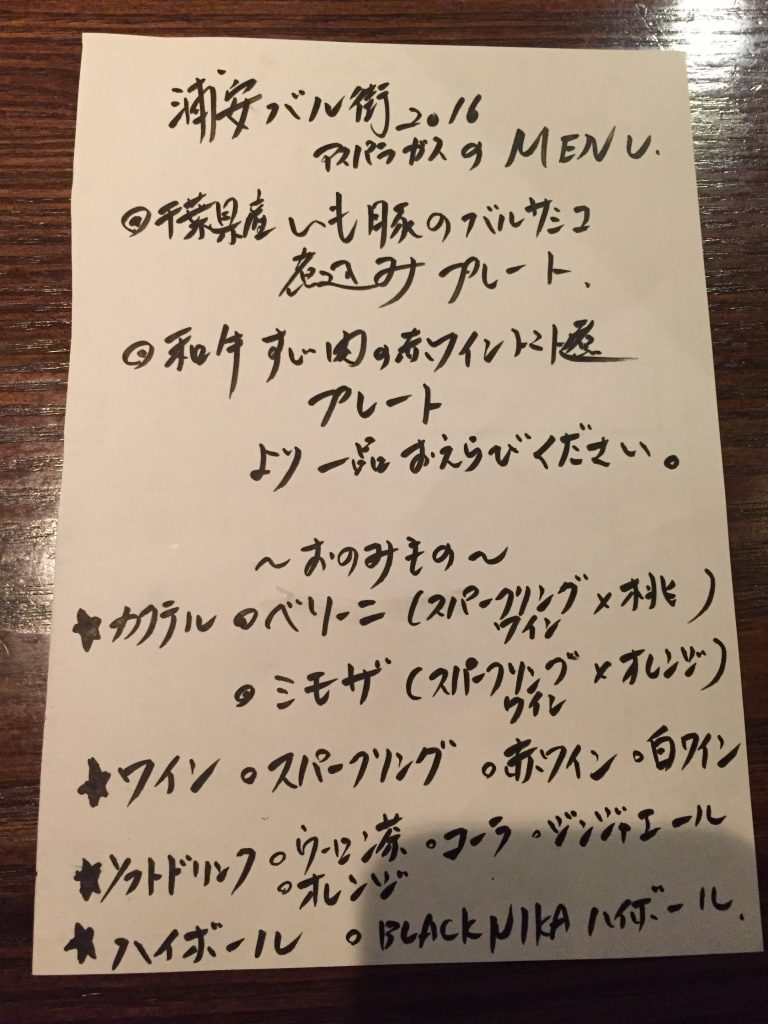 浦安バル街2016
アスパラガスの MENU.
◎千葉県産 いも豚のバルサミコ
煮込み プレート.
◎和牛すじ肉の赤ワイントマト煮
プレート
より一品おえらびください。
〜おのみもの〜
★カクテル ◎ベリーニ (スパークリングワイン×桃)
◎ミモザ (スパークリングワイン×オレンジ)
★ワイン ○スパークリング ○赤ワイン ○白ワイン
★ソフトドリンク ○ウーロン茶 ○コーラ ○ジンジャエール
○オレンジ
★ハイボール ○BLACK NIKA ハイボール.